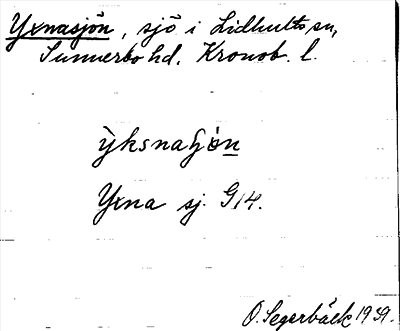 Yxnasjön, sjö i Lidhults sn,
Sunnerbo hd. Kronob. l.
Yxna sj. G14.
O. Segerbäck 1939.